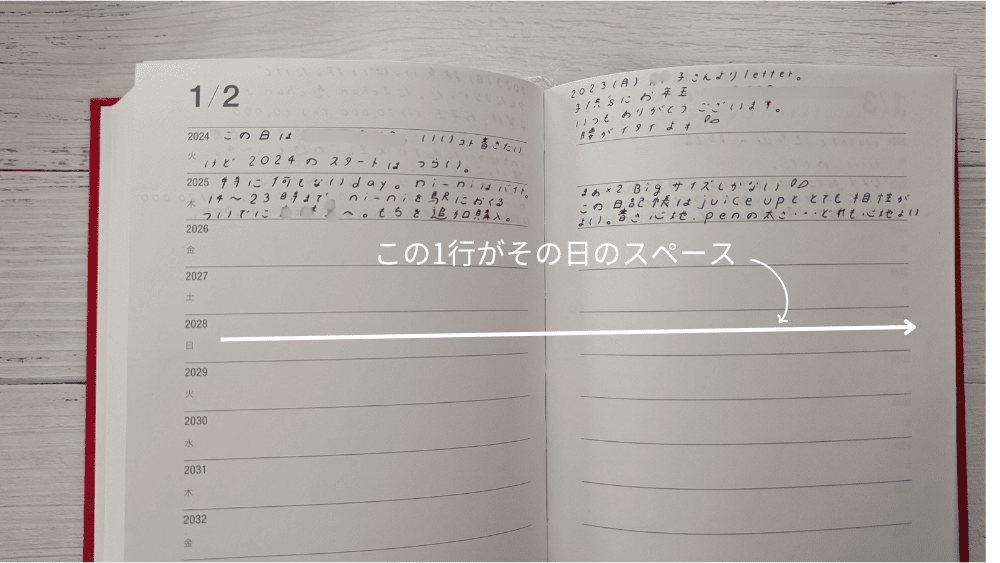 1/2
2024 この日は いいコト書きたい
火 けど 2024 の スタートは つらい。
2025 特に何もない day。 ni-niはバイト。
木 14〜23時まで ni-niを駅におくる
ついでに へ。もちを追加購入。
2026
金
2027
土
2028
日
2029
火
2030
水
2031
木
2032
金
2023 (月) 子さんより letter。
子供'sにお年玉
いつもありがとうございます。
腰がイタイよォ
まぁ×2 Bigサイズしかない
この日記帳は juice upと とても相性が
よい。書き心地、penの太さ…どれも心地よい
この1行がその日のスペース